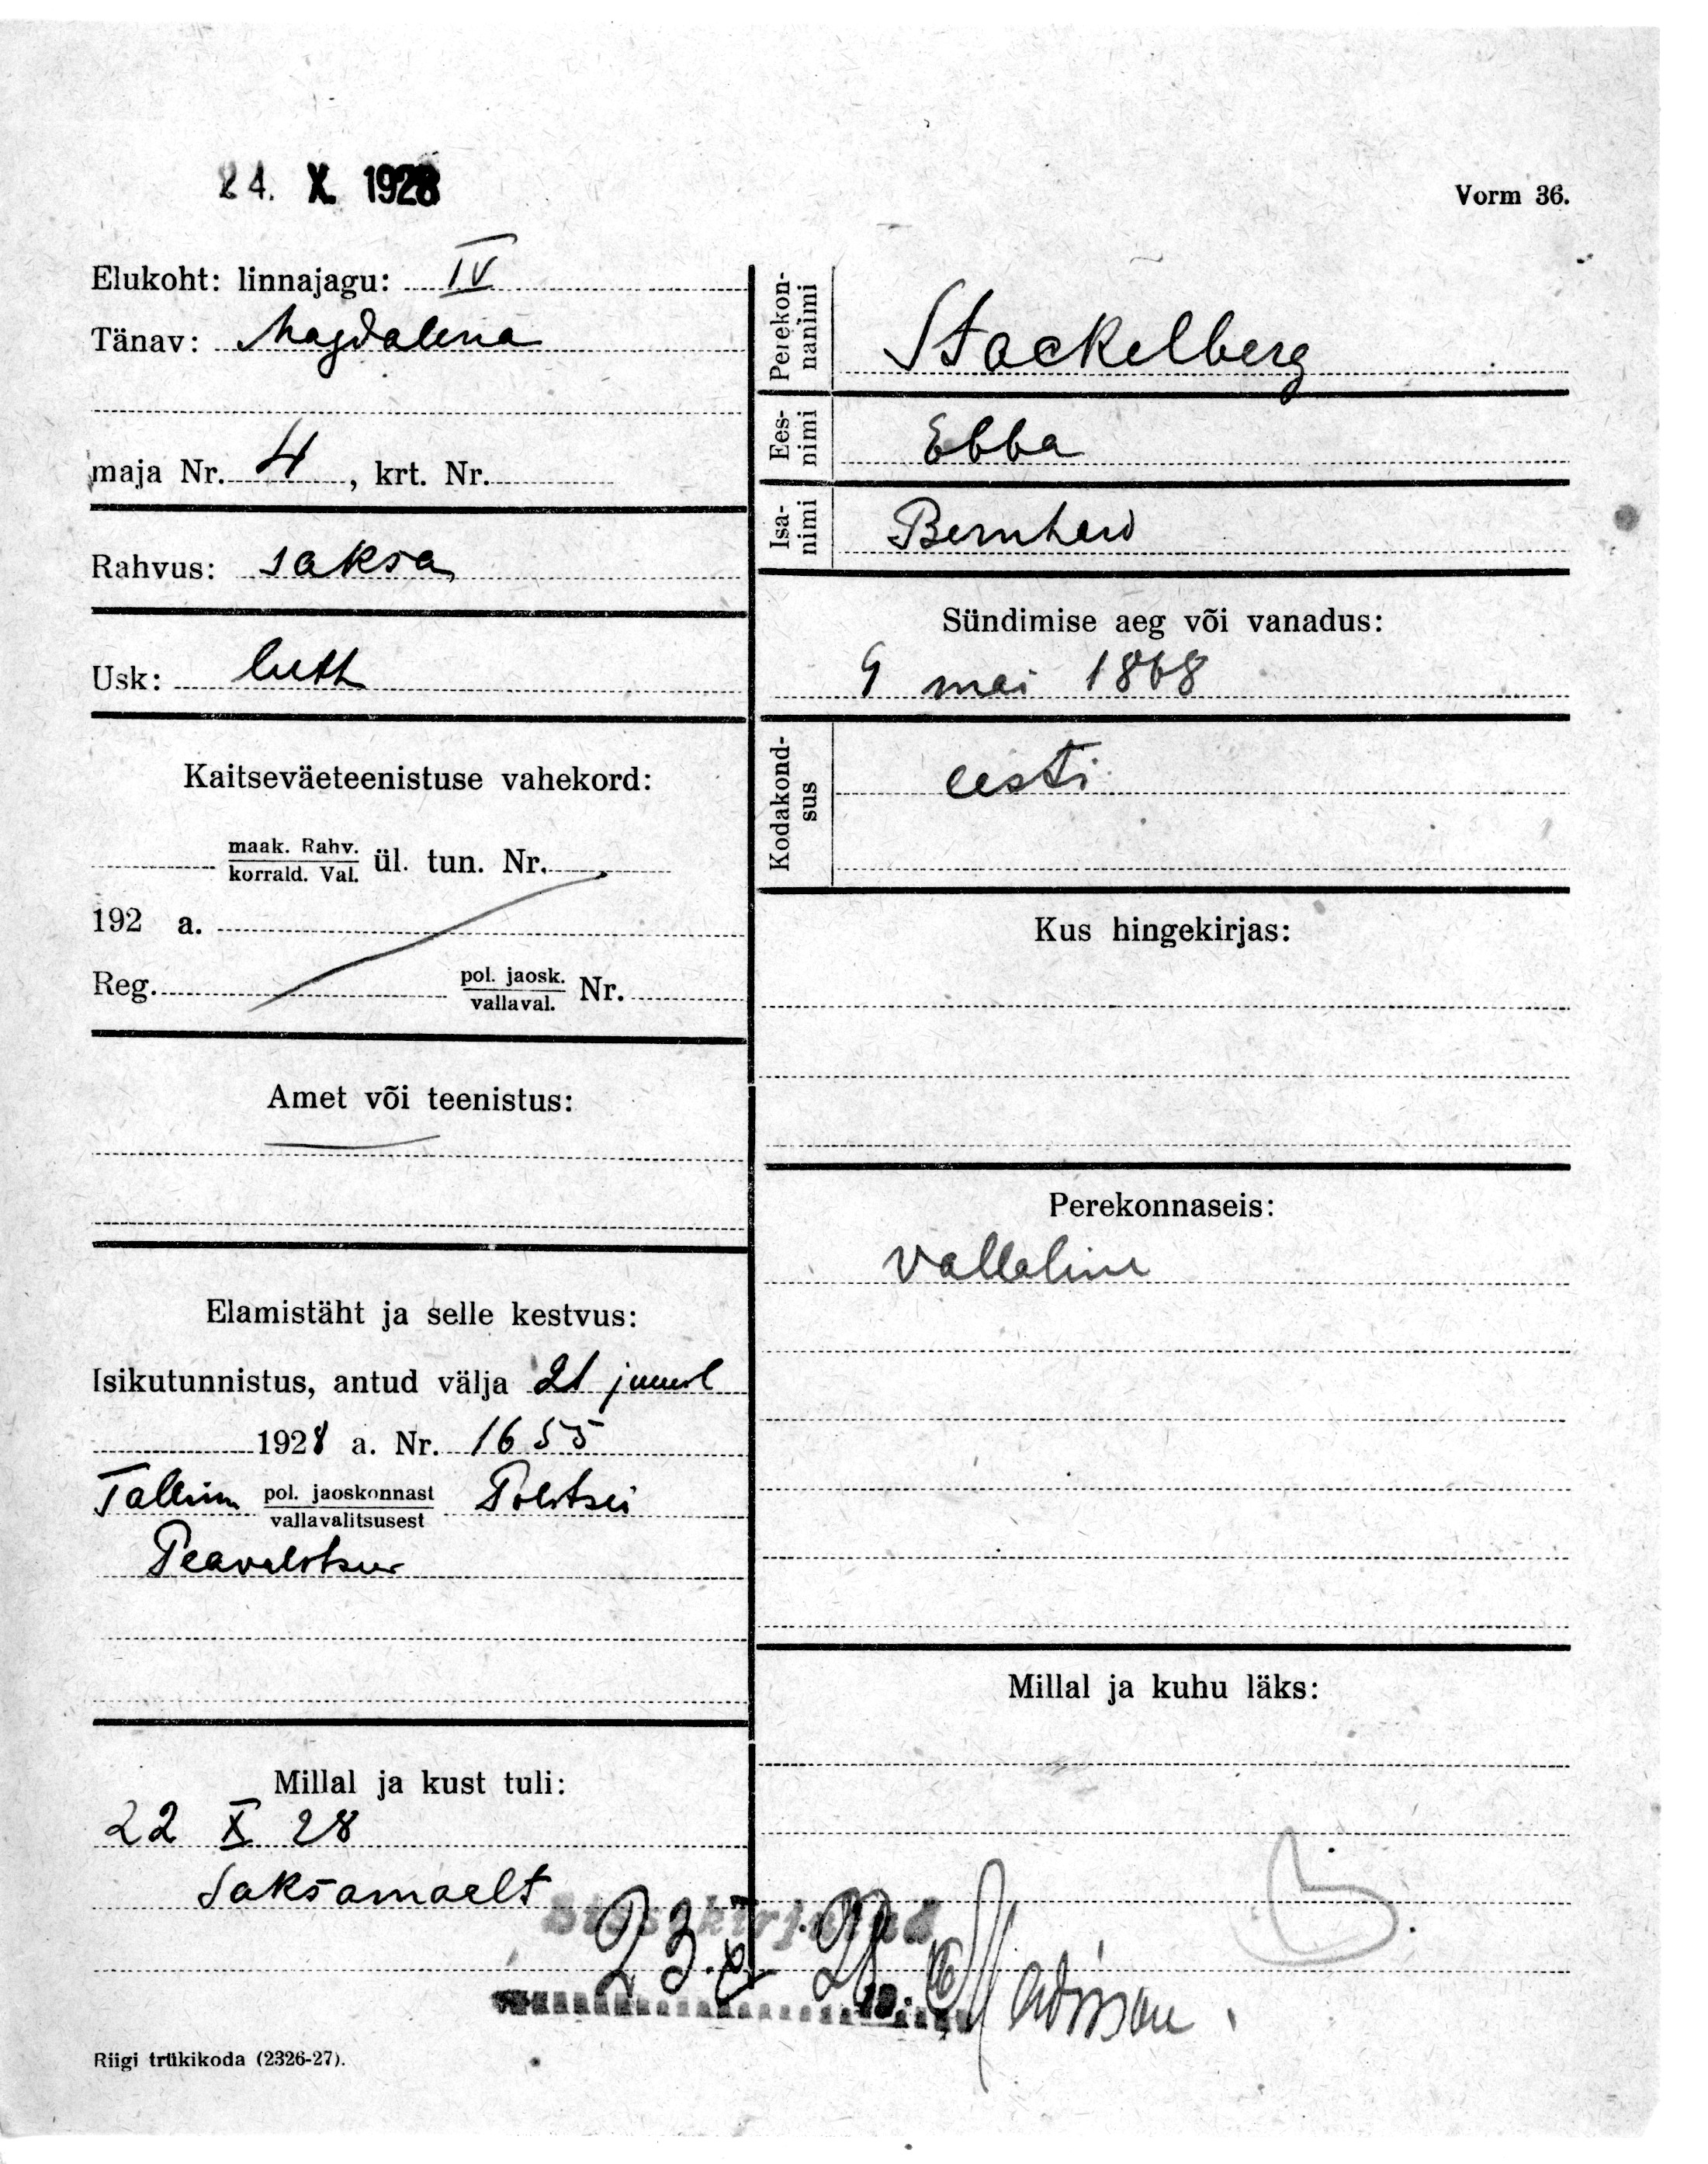 24. X 1928
Vorm 36.
Elukoht: linnajagu: IV
Tänav: Magdalena
maja Nr. 4, krt. Nr.
Rahvus: saksa
Usk: luth
Kaitseväeteenistuse vahekord:
maak. Rahv.
korrald. Val. ül. tun. Nr.
192 a.
Reg. pol. jaosk.
vallaval. Nr.
Amet või teenistus:
Elamistäht ja selle kestvus:
Isikutunnistus, antud välja 21
1928 a. Nr. 1655
Tallinn pol. jaoskonnast Politsei
vallavalitsusest
Millal ja kust tuli:
22 X 28
Saksamaelt
Perekon-
nanimi Stackelberg
Ees-
nimi Ebba
Isa-
nimi Bernhard
Sündimise aeg või vanadus:
9 mai 1868
Kodakond-
sus eesti
Kus hingekirjas:
Perekonnaseis:
vallaline
Millal ja kuhu läks:
Sissekirjutud
23. X 28
19
Riigi trükikoda (2326-27).